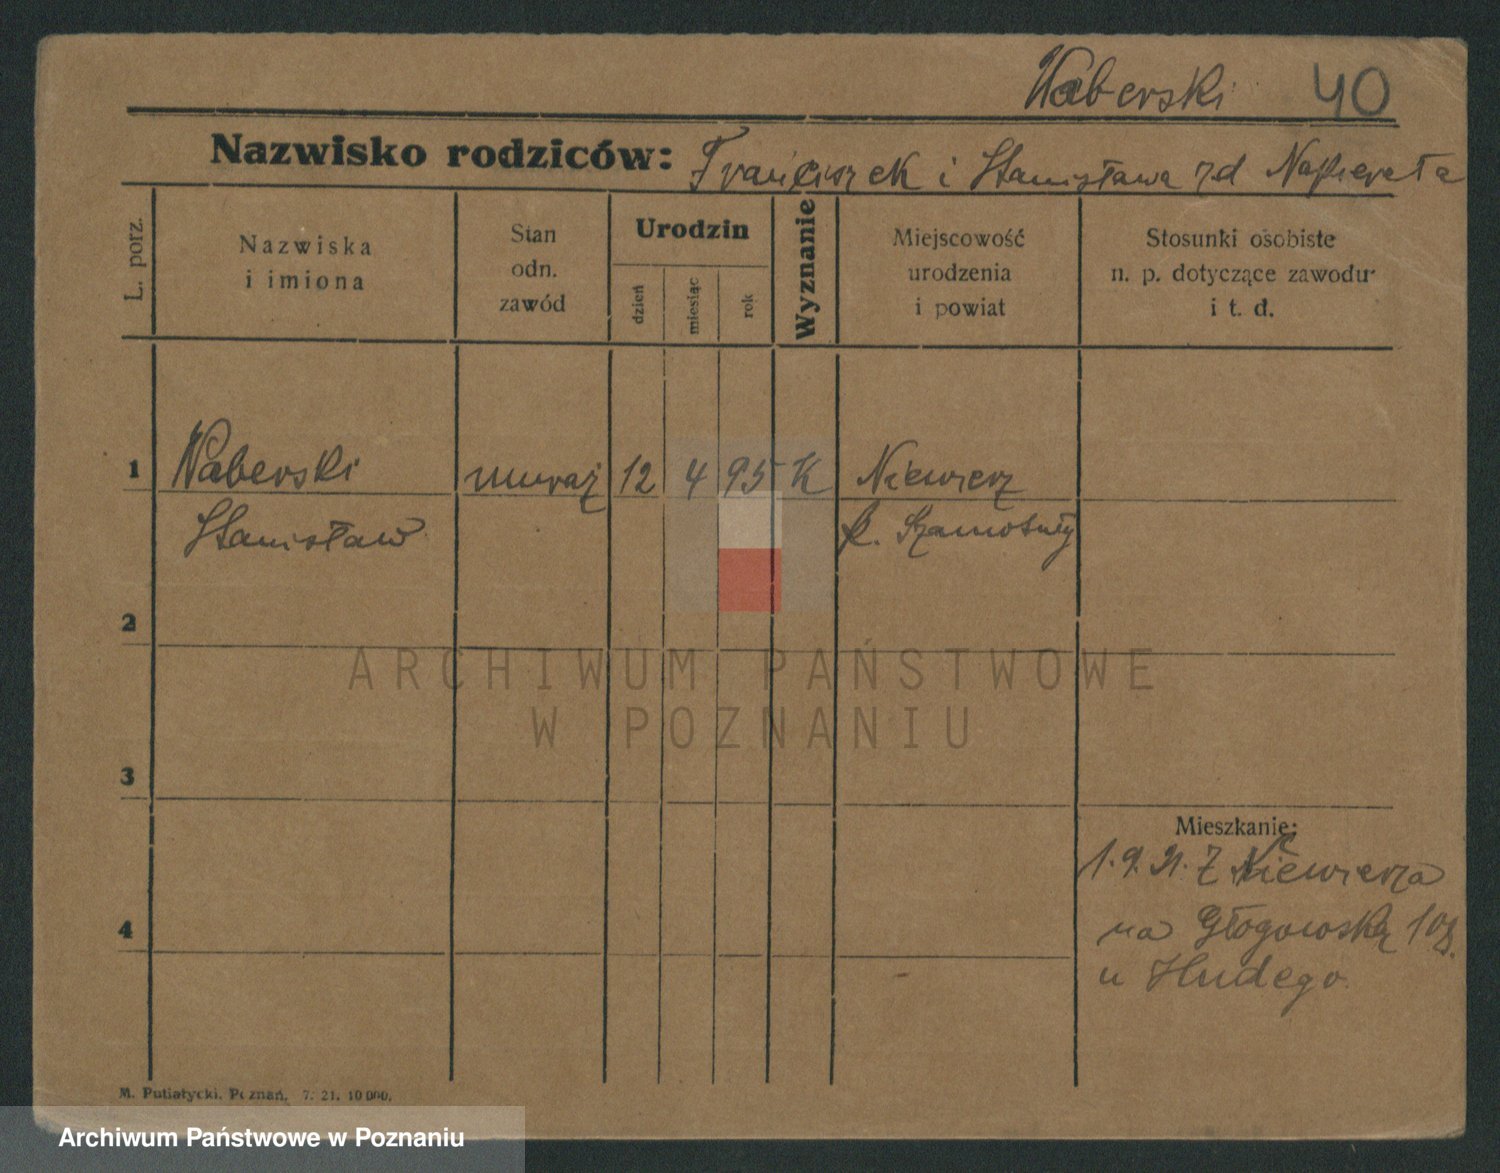 Naberski 40
Nazwisko rodziców: Franciszek i Stanisława rd Napierała
L. porz.
Nazwiska
i imiona
Stan
odn.
zawód
Urodzin
dzień
miesiąc
rok
Wyznanie
Miejscowość
urodzenia
i powiat
Stosunki osobiste
n. p. dotyczące zawodu
i t. d.
1 Naberski muraż 12 4 95 K Niewierz
Stanisław p. Szamotuły
2
3
4
Mieszkanie:
1.9.21. z Niewierza
na Głogowską 108.
u
M. Putiatycki, Poznań, 7. 21. 10 000.
ARCHIWUM PAŃSTWOWE
W POZNANIU
Archiwum Państwowe w Poznaniu